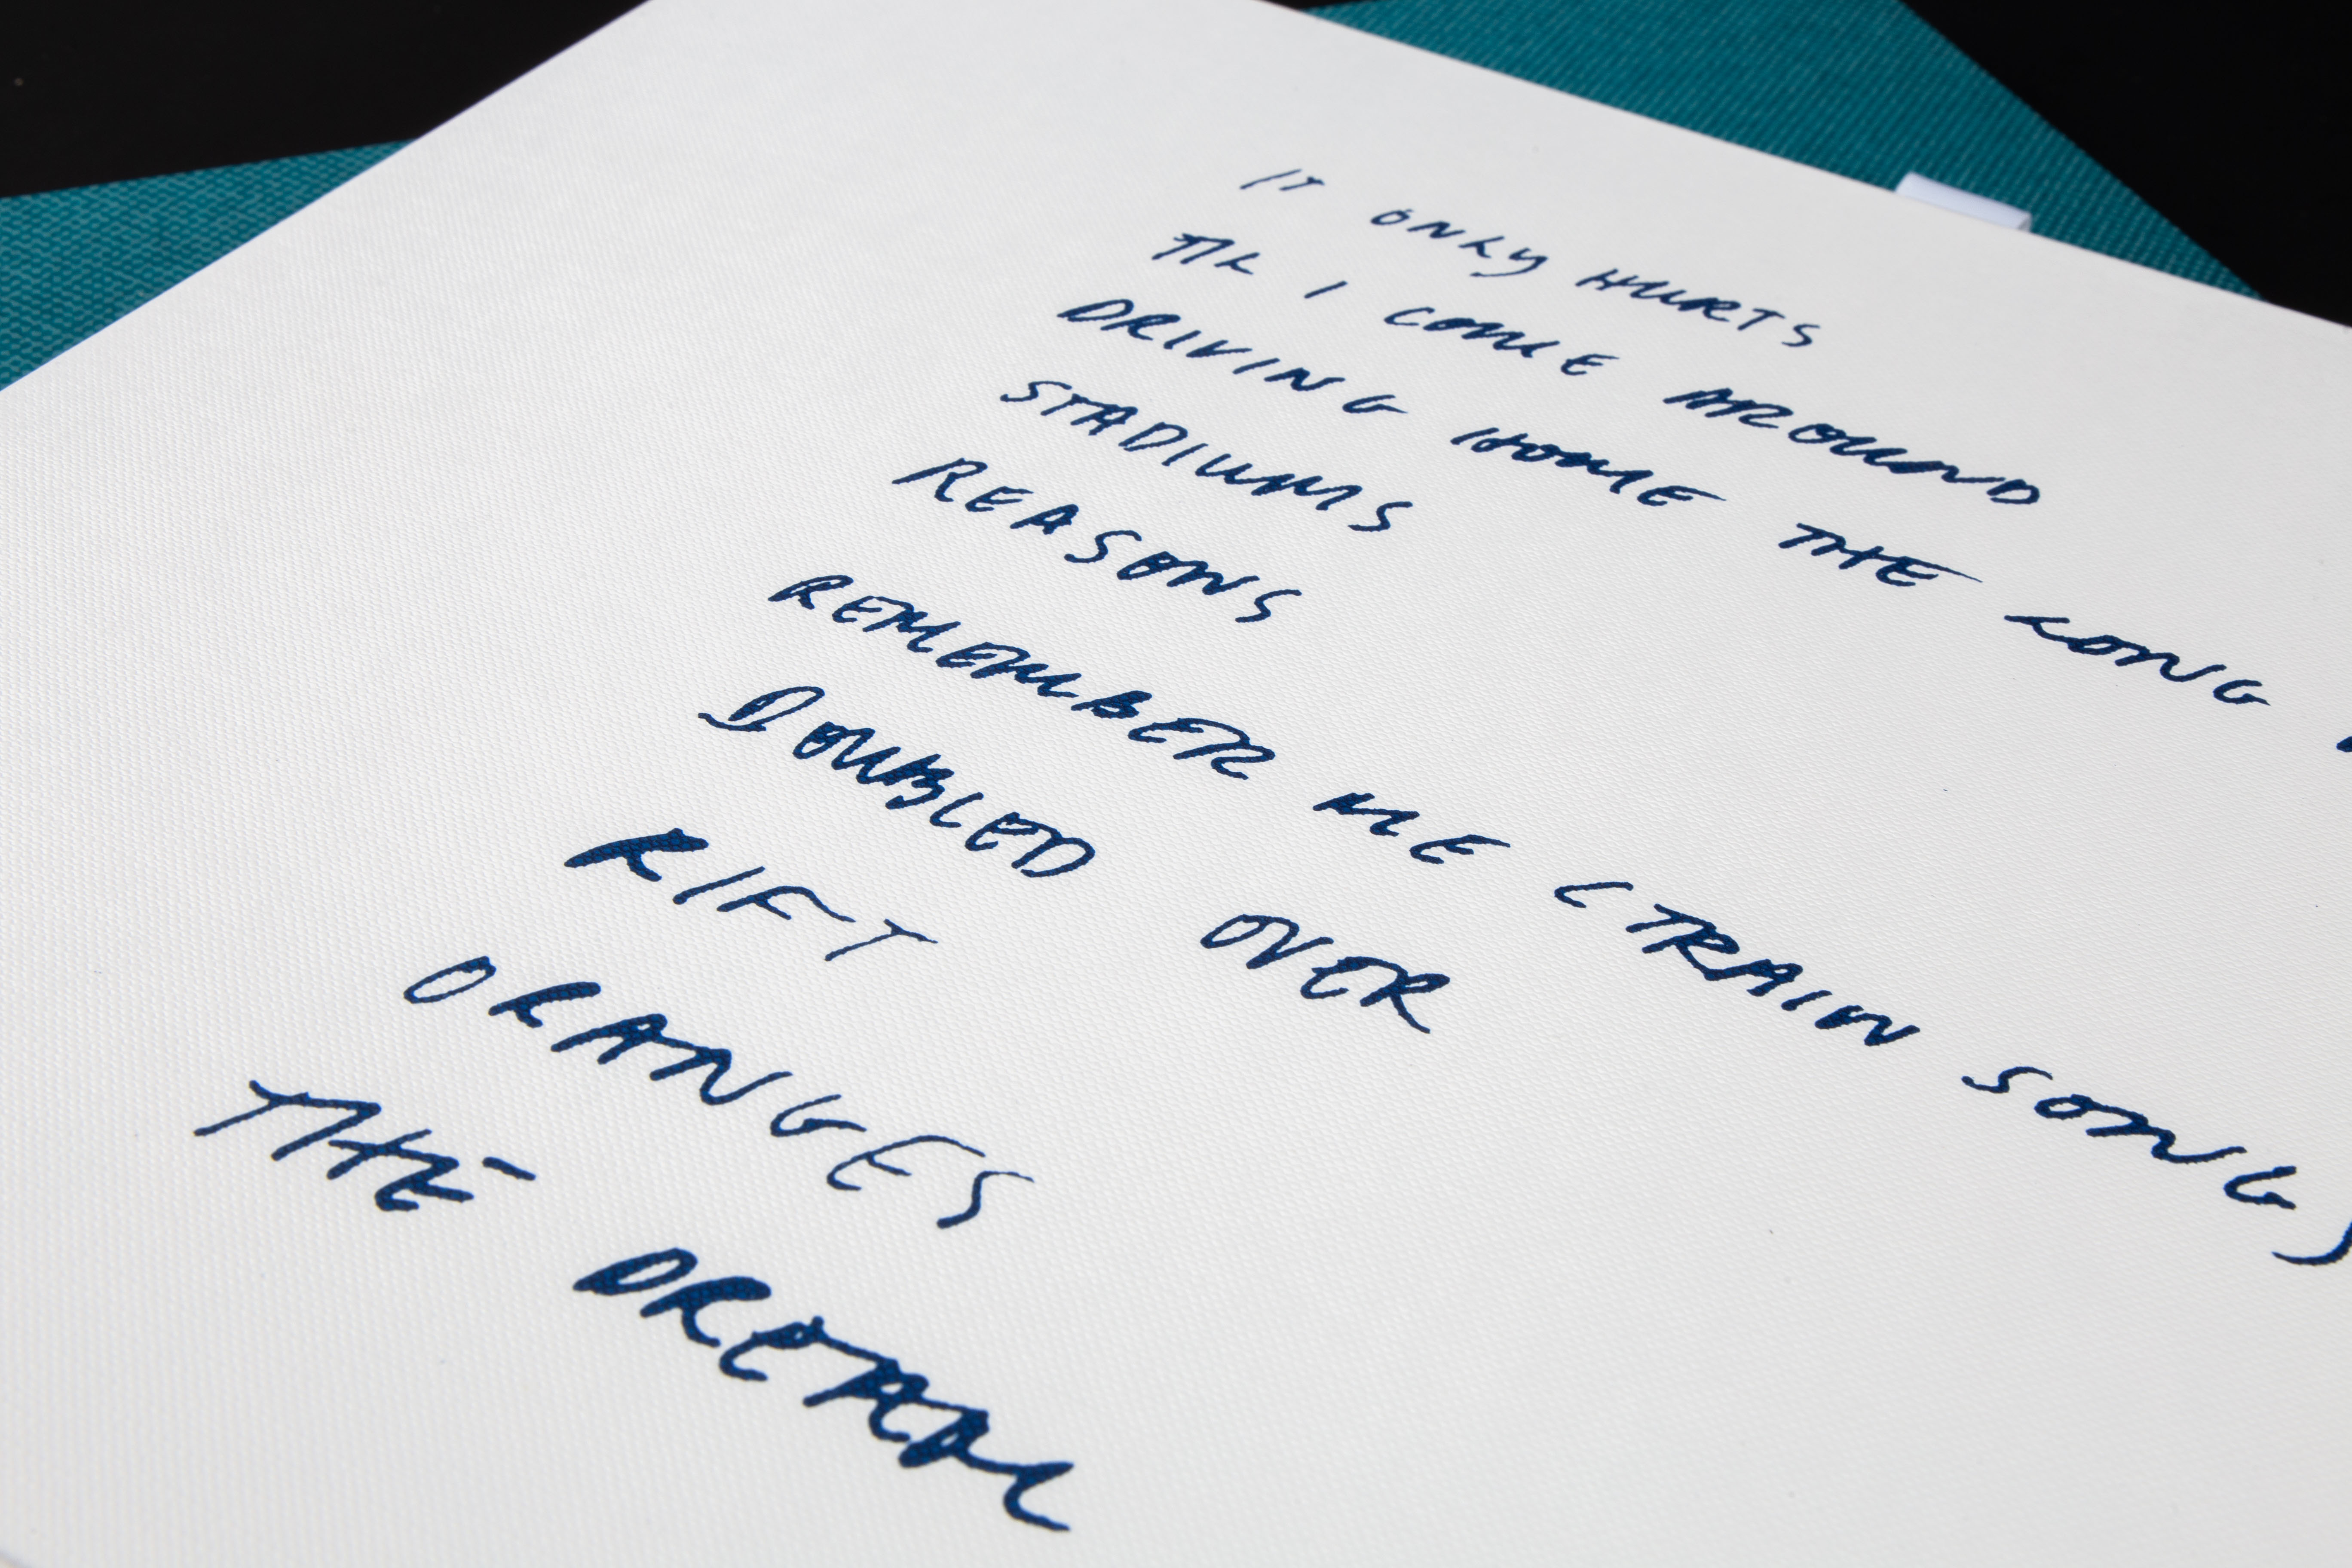 IT ONLY HURTS
TIL I COME AROUND
DRIVING HOME THE LONG
STADIUMS
REASONS
REMEMBER ME (TRAIN SONG)
DOUBLED OVER
RIFT
ORANGES
THE DREAM